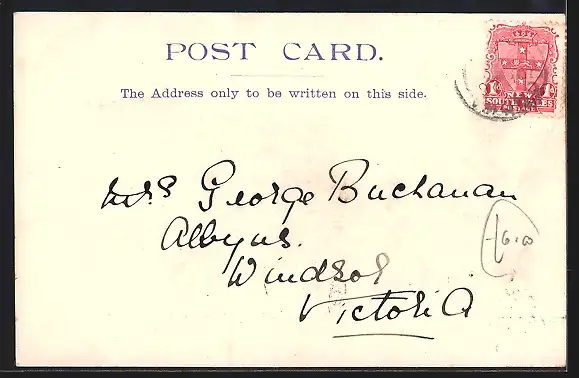 POST CARD.
The Address only to be written on this side.
1D NEW 1D
SOUTH WALES
Mrs George Buchanan
Albyns.
Windsor
Victoria